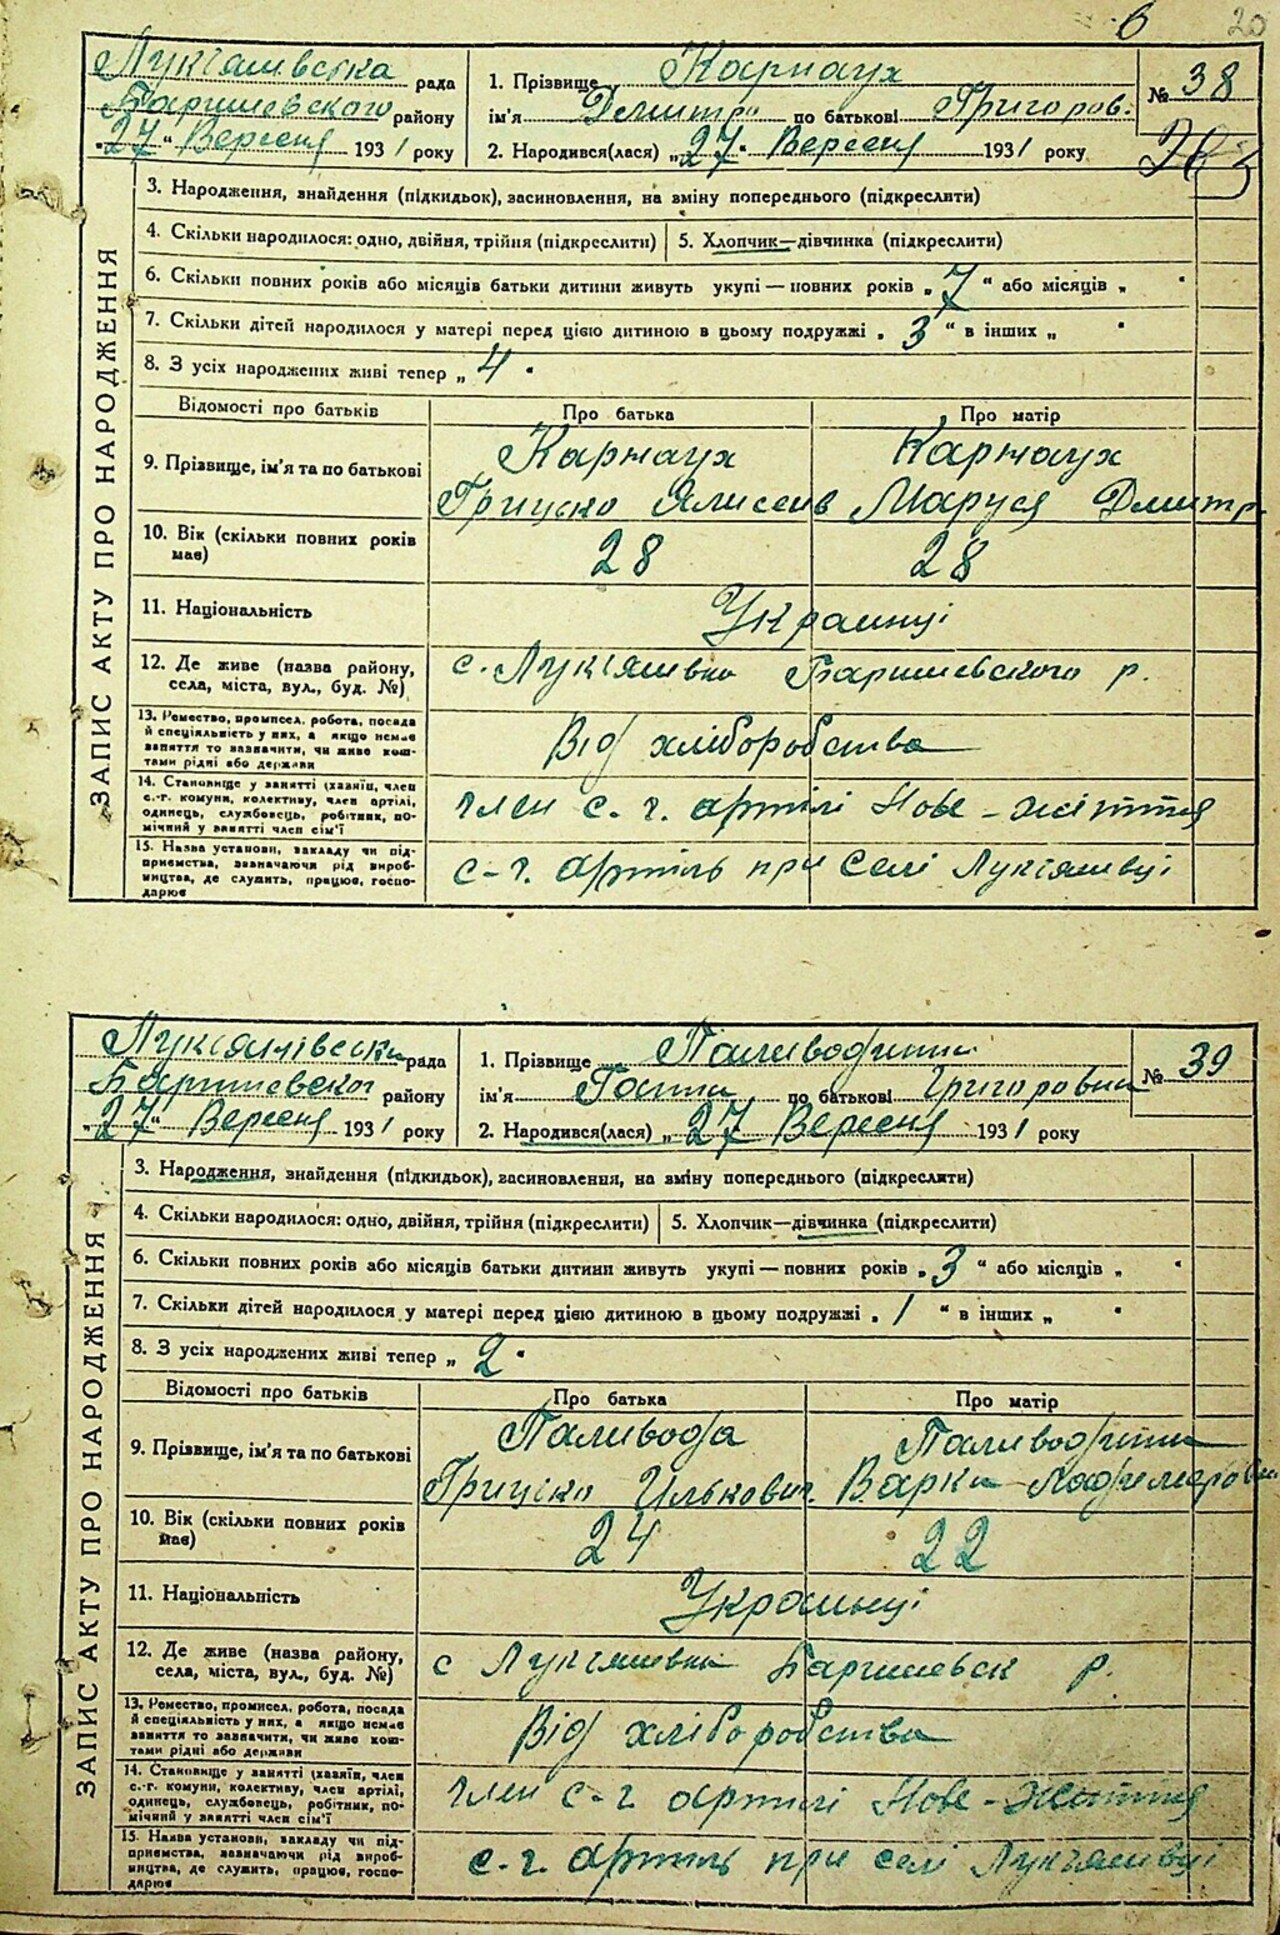 6 20
Лукіянівська рада
Баришевского району
"27" Вересня 1931 року
1. Прізвище Карнаух
ім'я Дмитро по батькові Григоров.
2. Народився(лася) "27" Вересня 1931 року
№ 38
ЗАПИС АКТУ ПРО НАРОДЖЕННЯ
3. Народження, знайдення (підкидьок), засиновлення, на зміну попереднього (підкреслити)
4. Скільки народилося: одно, двійня, трійня (підкреслити) 5. Хлопчик—дівчинка (підкреслити)
6. Скільки повних років або місяців батьки дитини живуть укупі — повних років „7" або місяців „ "
7. Скільки дітей народилося у матері перед цією дитиною в цьому подружжі „3" в інших „ "
8. З усіх народжених живі тепер „4"
Відомості про батьків Про батька Про матір
9. Прізвище, ім'я та по батькові
Карнаух Карнаух
Грицько Ялисеив Маруся Дмитр.
10. Вік (скільки повних років має)
28 28
11. Національність Украинці
12. Де живе (назва району,
села, міста, вул., буд. №)
с. Лукіянівка Баришевского р.
13. Ремество, промисел, робота, посада
й спеціяльність у них, а якщо немає
заняття то зазначити, чи живе кош-
тами рідні або держави
Від хліборобства
14. Становище у занятті (хазяїн, член
с.-г. комуни, колективу, член артілі,
одинець, службовець, робітник, по-
мічний у занятті член сім'ї
член с. г. артілі Нове-життя
15. Назва установи, закладу чи під-
приємства, зазначаючи рід вироб-
ництва, де служить, працює, госпо-
дарює
с-г. артіль при селі Лукіянівці
Лукіянівська рада
Баришевског району
"27" Вересня 1931 року
1. Прізвище Паливодити
ім'я Гапка по батькові Григоровна
2. Народився(лася) „27 Вересня 1931 року
№ 39
ЗАПИС АКТУ ПРО НАРОДЖЕННЯ
3. Народження, знайдення (підкидьок), засиновлення, на зміну попереднього (підкреслити)
4. Скільки народилося: одно, двійня, трійня (підкреслити) 5. Хлопчик—дівчинка (підкреслити)
6. Скільки повних років або місяців батьки дитини живуть укупі — повних років „3" або місяців „ "
7. Скільки дітей народилося у матері перед цією дитиною в цьому подружжі „1" в інших „ "
8. З усіх народжених живі тепер „2"
Відомості про батьків Про батька Про матір
9. Прізвище, ім'я та по батькові
Паливода Паливодити
Грицько Илькович. Варка
10. Вік (скільки повних років має)
24 22
11. Національність Украинці
12. Де живе (назва району,
села, міста, вул., буд. №)
с Лукіянівка Баришевск р.
13. Ремество, промисел, робота, посада
й спеціяльність у них, а якщо немає
заняття то зазначити, чи живе кош-
тами рідні або держави
Від хліборобства
14. Становище у занятті (хазяїн, член
с.-г. комуни, колективу, член артілі,
одинець, службовець, робітник, по-
мічний у занятті член сім'ї
член с-г. артилі Нове-життя
15. Назва установи, закладу чи під-
приємства, зазначаючи рід вироб-
ництва, де служить, працює, госпо-
дарює
с.-г. артіль при селі Лукіянівці